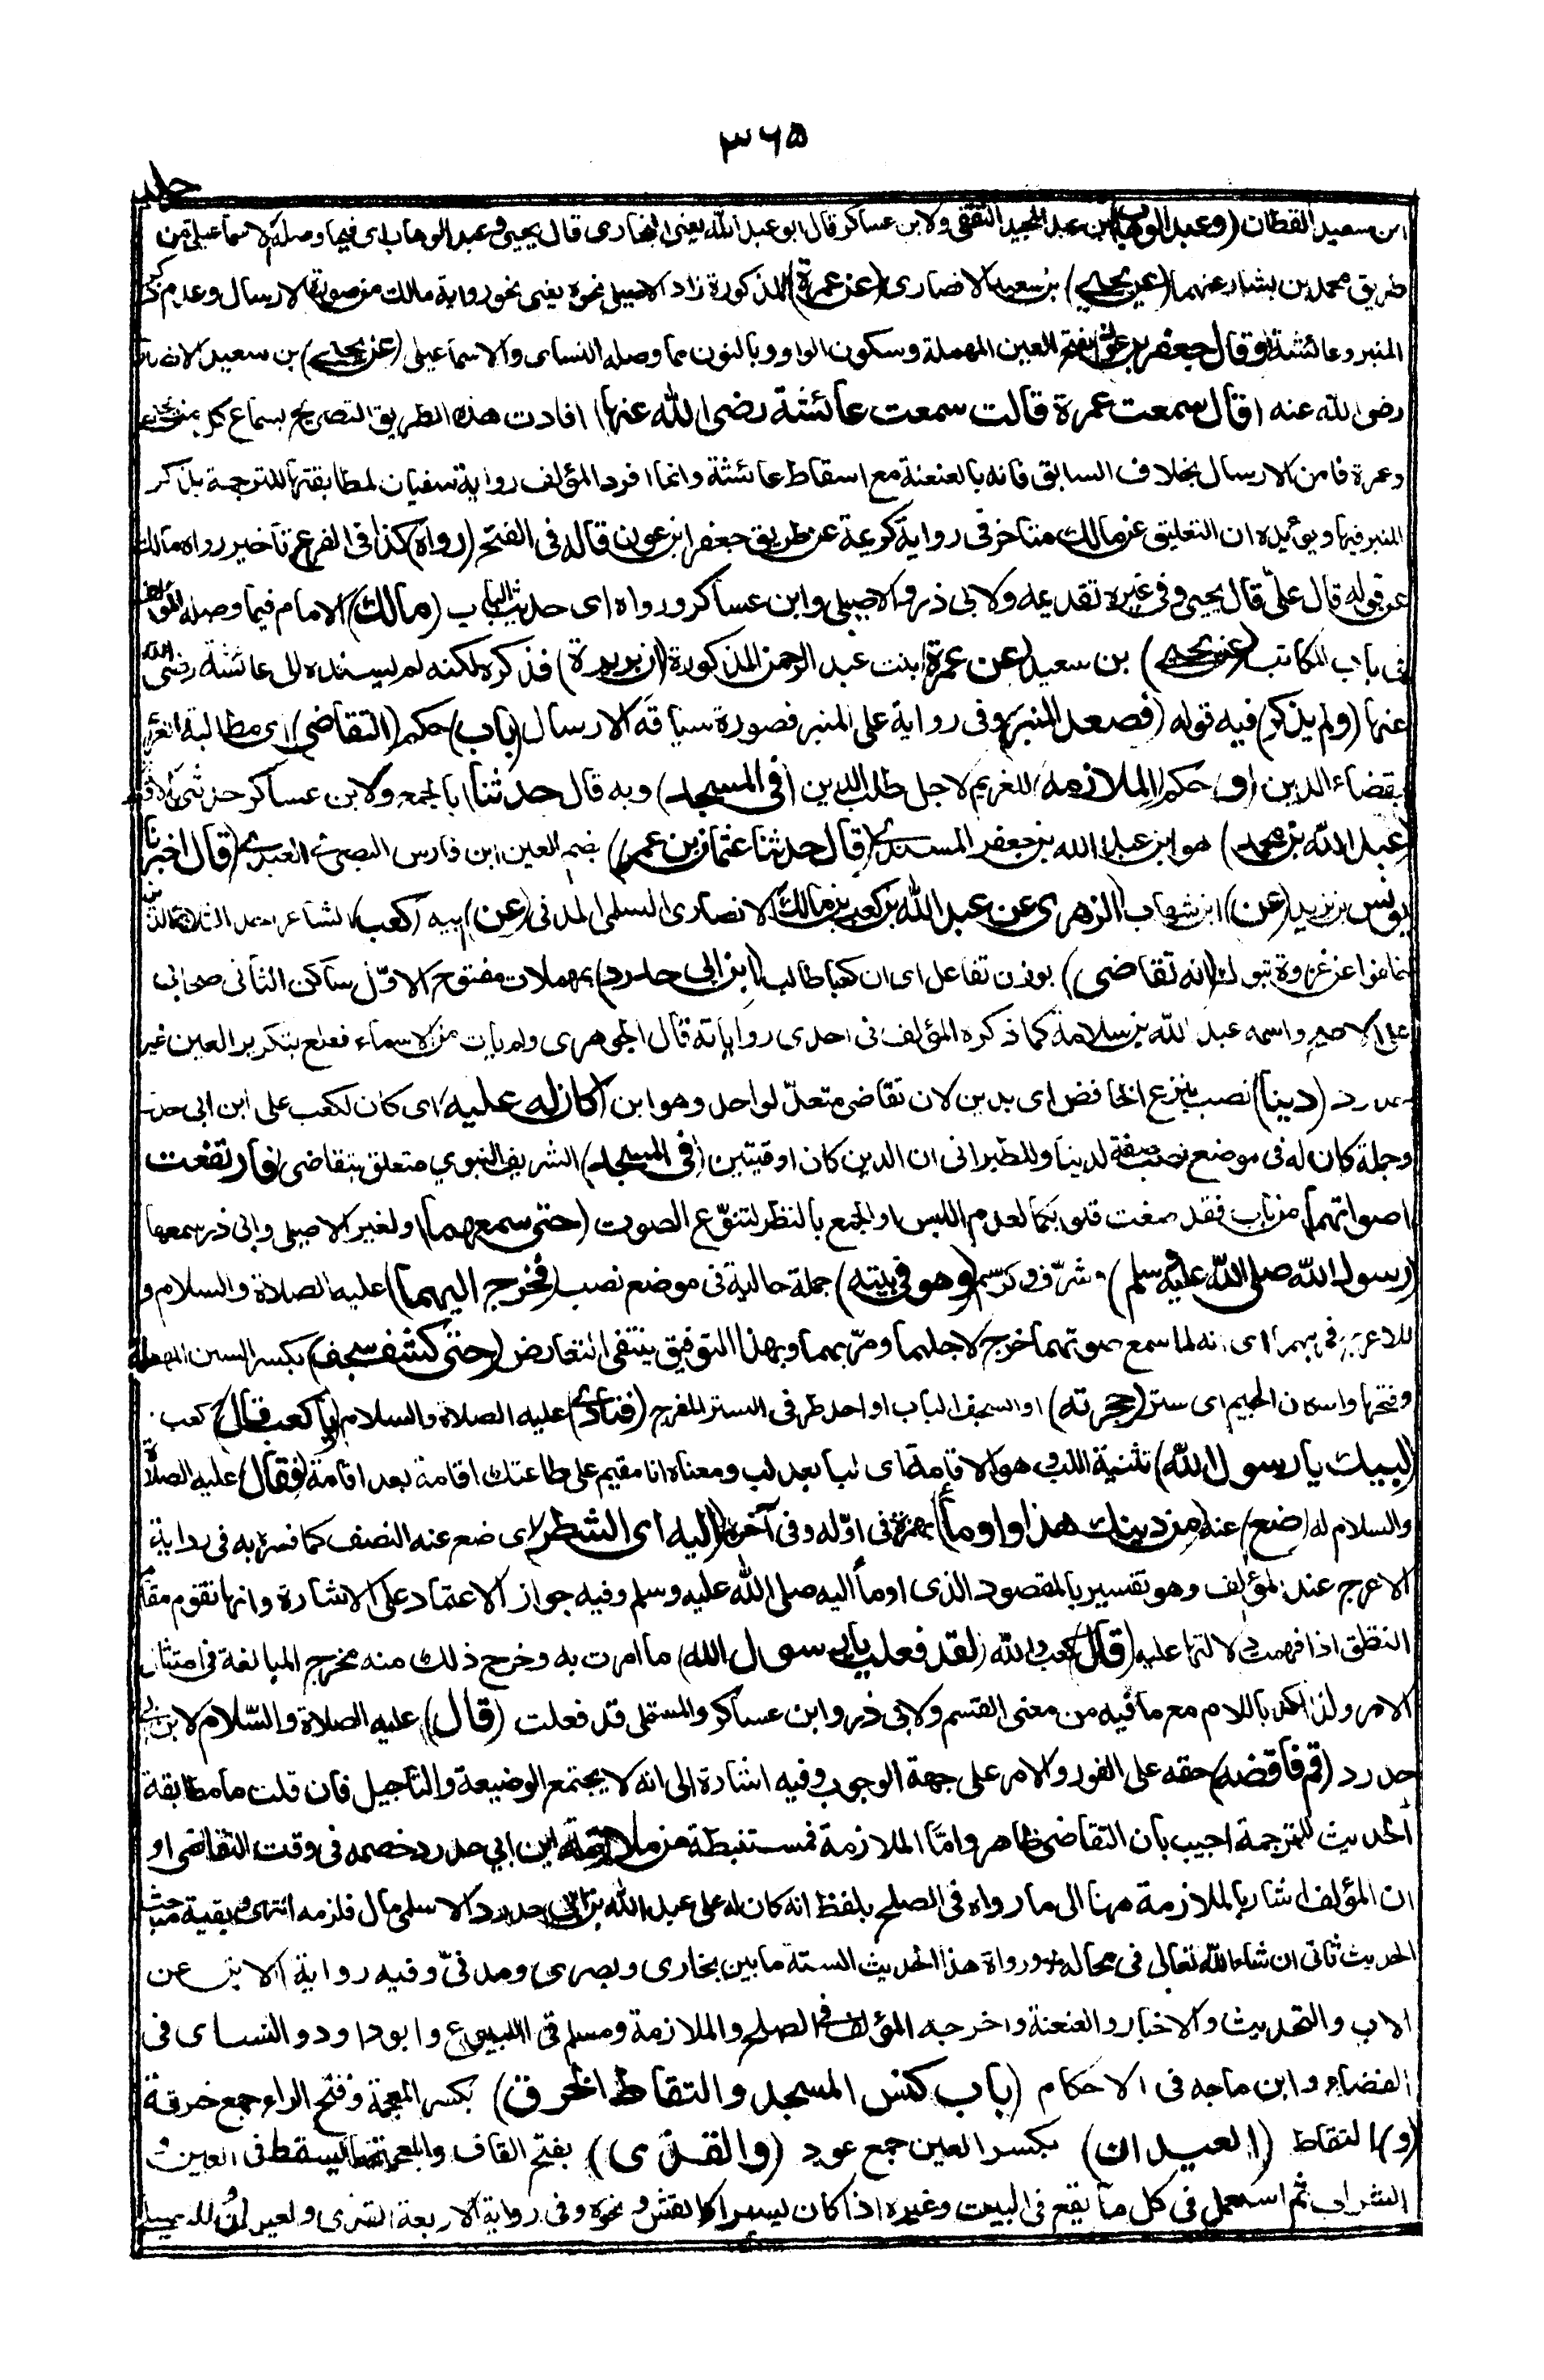 ٣٦٥
ابن سعيد القطان (وعبد الوهاب) بن عبد المجيد الثقفي ولابن عساكر قال ابو عبد الله يعني البخارى قال يحيى وعبد الوهاب اى فيما وصله الاسماعيلى من
طريق محمد بن بشار عنهما (عن يحيى) بن سعيد الانصارى (عن عمرة) المذكورة زاد الاصيلى نحوه يعنى نحو رواية مالك من صورة الارسال وعدم ذكر
المنبر وعائشة (وقال جعفر بن عون) بفتح العين المهملة وسكون الواو وبالنون مما وصله النساى والاسماعيلى (عن يحيى) بن سعيد الانصارى
رضى الله عنه (قال سمعت عمرة قالت سمعت عائشة رضى الله عنها) افادت هذه الطريق التصريح بسماع كل من يحيى
وعمرة فامن الارسال بخلاف السابق فانه بالعنعنة مع اسقاط عائشة وانما افرد المؤلف رواية سفيان لمطابقتها للترجمة بذكر
المنبر فيها ويؤيده ان التعليق عن مالك متاخر فى رواية كريمة عن طريق جعفر ابن عون قاله فى الفتح (رواه) كذا فى الفرع تاخير رواه مالك
عن قوله قال علىّ قال يحيى وفى غيره تقديمه ولابى ذر والاصيلى وابن عساكر ورواه اى حديث الباب (مالك) الامام فيما وصله المؤلف
فى باب المكاتب (عن يحيى) بن سعيد (عن عمرة) بنت عبد الرحمن المذكورة (ان بريرة) فذكره لكنه لم يسنده الى عائشة رضى الله
عنها (ولم يذكر) فيه قوله (فصعد المنبر) وفى رواية على المنبر فصورة سياقه الارسال (باب) حكم (التقاضى) اى مطالبة الغريم
بقضاء الدين (و) حكم (الملازمة) للغريم لاجل طلب الدين (فى المسجد) وبه قال (حدثنا) بالجمع ولابن عساكر حدثنى
(عبد الله بن محمد) هو ابن عبد الله بن جعفر المسندى (قال حدثنا عثمان بن عمر) بضم العين ابن فارس البصرى العبدى (قال اخبرنا
يونس بن يزيد (عن) ابن شهاب (الزهرى عن عبد الله بن كعب بن مالك) الانصارى السلمى المدنى (عن) ابيه (كعب) الشاعر احد الثلاثة الذين
تخلفوا عن غزوة تبوك (انه تقاضى) بوزن تفاعل اى ان كعبا طالب (ابن ابى حدرد) بمهملات مفتوح الاوّل ساكن الثانى صحابى
على الاصح واسمه عبد الله بن سلامة كما ذكره المؤلف فى احدى رواياته قال الجوهرى ولم يات من الاسماء فعلع بتكرير العين غير
حدرد (دينا) نصب بنزع الخافض اى بدين لان تقاضى متعدّ لواحد وهو ابن (كان له عليه) اى كان لكعب على ابن ابى حدرد
وجملة كان له فى موضع نصب صفة لدينا وللطبرانى ان الدين كان اوقيتين (فى المسجد) الشريف النبوي متعلق بتقاضى (فارتفعت
اصواتهما) من باب فقد صغت قلوبكما لعدم اللبس او الجمع بالنظر لتنوّع الصوت (حتى سمعهما) ولغير الاصيلى وابى ذر سمعها
(رسول الله صلى الله عليه وسلم) وشرّف وكرّم (وهو فى بيته) جملة حالية فى موضع نصب (فخرج اليهما) عليه الصلاة والسلام و
للاعرج فمر بهما اى انه لما سمع صوتهما خرج لاجلهما ومرّ بهما وبهذا التوفيق ينتفى التعارض (حتى كشف سجف) بكسر السين المهملة
وفتحها واسكان الجيم اى ستر (حجرته) او السجف الباب او احد طرفى الستر المفرج (فنادى) عليه الصلاة والسلام (يا كعب قال) كعب
(لبيك يا رسول الله) تثنية اللب وهو الاقامة اى لبا بعد لب ومعناه انا مقيم على طاعتك اقامة بعد اقامة (فقال) عليه الصلاة
والسلام له (ضع) عنه (من دينك هذا واومأ) بهمزة فى اوّله وفى آخره (اليه اى الشطر) اى ضع عنه النصف كما فسره به فى رواية
الاعرج عند المؤلف وهو تفسير بالمقصود الذى اومأ اليه صلى الله عليه وسلم وفيه جواز الاعتماد على الاشارة وانها تقوم مقام
النطق اذا فهمت دلالتها عليه (قال) كعب والله (لقد فعلت يا رسول الله) ما امرت به وخرج ذلك منه مخرج المبالغة فى امتثال
الامر ولذا اكد باللام مع ما فيه من معنى القسم ولابى ذر وابن عساكر والمستملى قد فعلت (قال) عليه الصلاة والسّلام لابن ابى
حدرد (قم فاقضه) حقه على الفور والامر على جهة الوجوب وفيه اشارة الى انه لا يجتمع الوضيعة والتأجيل فان قلت ما مطابقة
الحديث للترجمة اجيب بان التقاضى ظاهر وامّا الملازمة فمستنبطة من ملازمة ابن ابى حدرد خصمه فى وقت التقاضى او
ان المؤلف اشار بالملازمة هنا الى ما رواه فى الصلح بلفظ انه كان له على عبد الله بن ابى حدرد الاسلمى مال فلزمه انتهى وبقية مباحث
الحديث تاتى ان شاء الله تعالى فى محاله ورواة هذا الحديث الستة ما بين بخارى وبصرى ومدنىّ وفيه رواية الابن عن
الاب والتحديث والاخبار والعنعنة واخرجه المؤلف فى الصلح والملازمة ومسلم فى البيوع وابو داود والنساى فى
القضاء وابن ماجه فى الاحكام (باب كنس المسجد والتقاط الخرق) بكسر المعجمة وفتح الراء جمع خرقة
(و) التقاط (العيدان) بكسر العين جمع عود (والقذى) بفتح القاف والمعجمة ما يسقط فى العين و
الشراب ثم استعمل فى كل ما يقع فى البيت وغيره اذا كان يسيرا كالقش ونحوه وفى رواية الاربعة القذى والعيدان